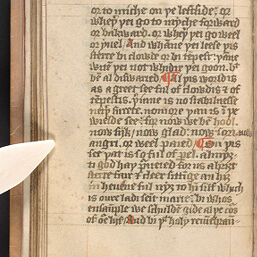 or to miche on ye leftside: or
whey yei go to myche forward
or bakward. or whey yei go weel
or yuel. And whane yei lese yis
sterre bi clowde or bi tepest: yane
wite yei not whidir yei goon. but
be al disward. ¶ Al yis world is
as a greet see ful of clowdis & of
tepestis. yanne is no stablnesse
ney sarete. no more yan is i ye
wielde see. for now we be hool.
now sijk / now glad. now sor
angri. or weel paied. ¶ On yis
see yat is so ful of pel. almyȝ
ti god hay ynneted for us a briȝt
sterre sett & cleer sittige an hiȝ
in heuene ful nyȝ to hi silf which
is oure ladi seit marie. Bi whos
ensaumple we schulde gide al ye cors
of oure lijf. And bi yat holy reuerran